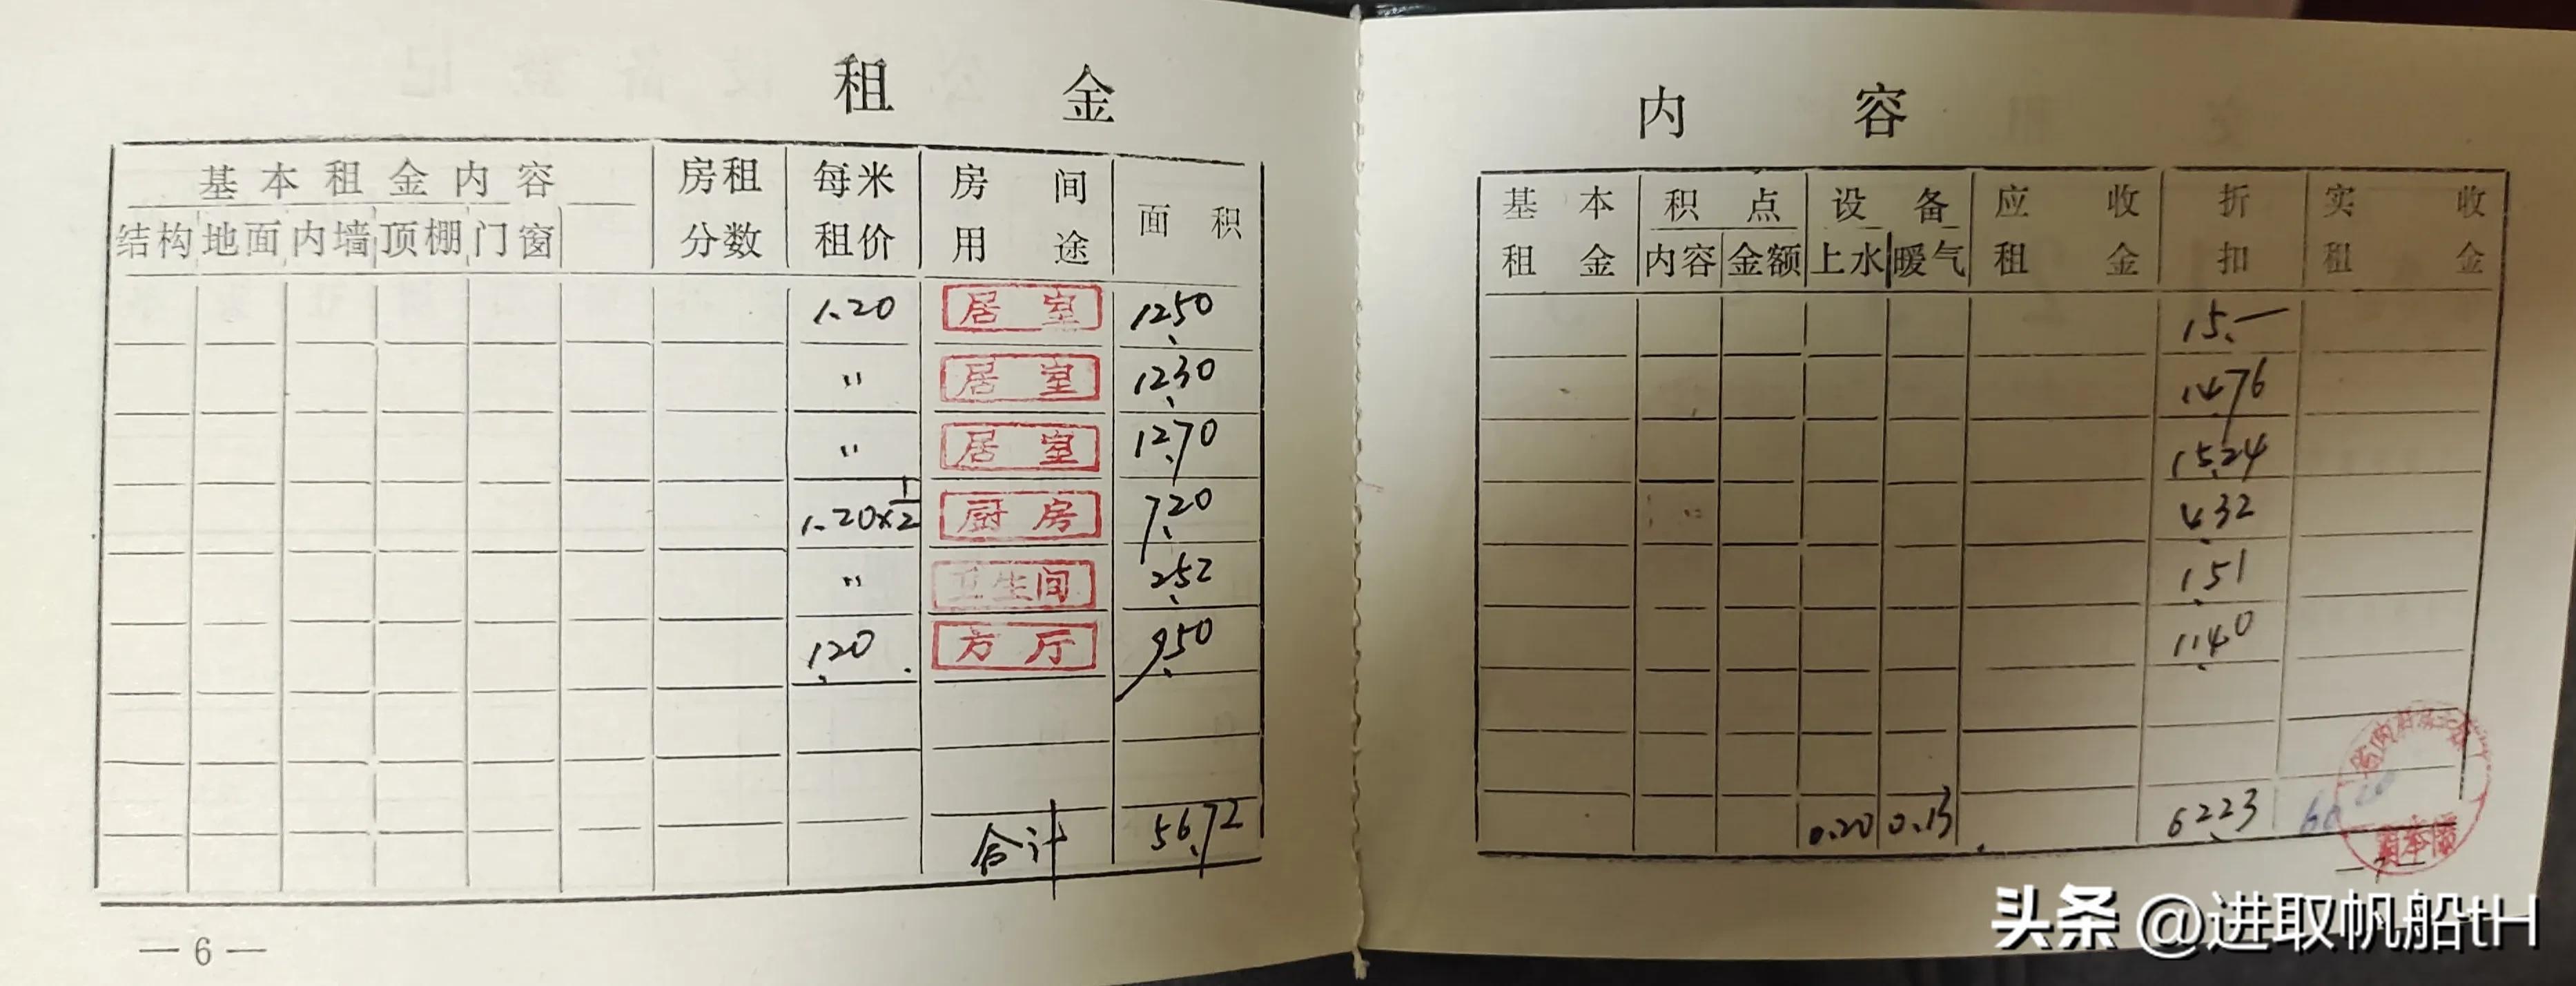 租 金 内 容
基本租金内容 房租 每米 房间 面积
结构 地面 内墙 顶棚 门窗 分数 租价 用途
1.20 居室 12.50
〃 居室 12.30
〃 居室 12.70
1.20×1/2 厨房 7.20
〃 卫生间 2.52
1.20 方厅 9.50
合计 56.72
—6—
基本 积点 设备 应收 折 实收
租金 内容 金额 上水 暖气 租金 扣 租金
15.—
14.76
15.24
4.32
1.51
11.40
0.20 0.13 62.23
—7—
头条 @进取帆船tH